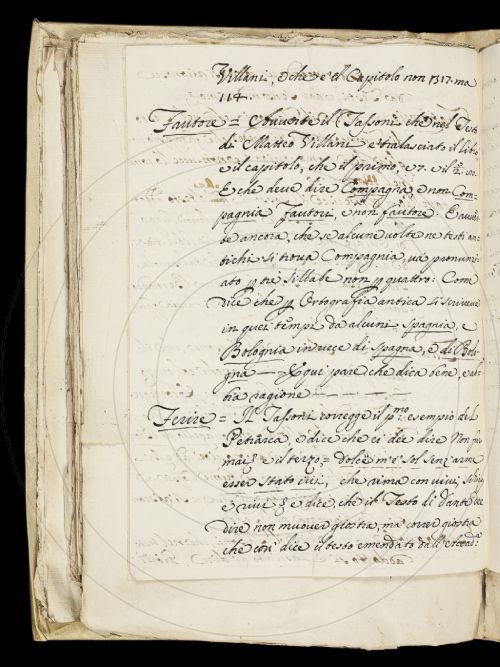 Villani, e che è il Capitolo non 1317. ma
114.
Fautore = Avverte il Tassoni che nel Testo
di Matteo Villani è tralasciato il libro
e il capitolo, che il primo, e 7. e il 2.
E che deve dire Compagna, e non Com-
pagnia Fautori, e non fautore. E avver-
te ancora, che se alcune volte ne testi an-
tichi si trova Compagnia, va pronunzi-
ato p tre sillabe non p quattro: Come
dice che p Ortografia antica si scriveva
in quei tempi da alcuni Spagnia, e
Bolognia invece di Spagna, e di Bolo-
gna — E qui pare che dica bene, e ab-
bia ragione — — — —
Ferire = Il Tassoni corregge il pmo esempio del
Petrarca, e dice che ei dee dire Non fu
mai e il terzo = Dolce m'è sol senz'arme
esser stato ivi, che rima con vivi,
e rivi e dice, che il Testo di Dante dee
dire non muover giostra, ma correr giostra
che così dice il testo emendato dall'Accad.